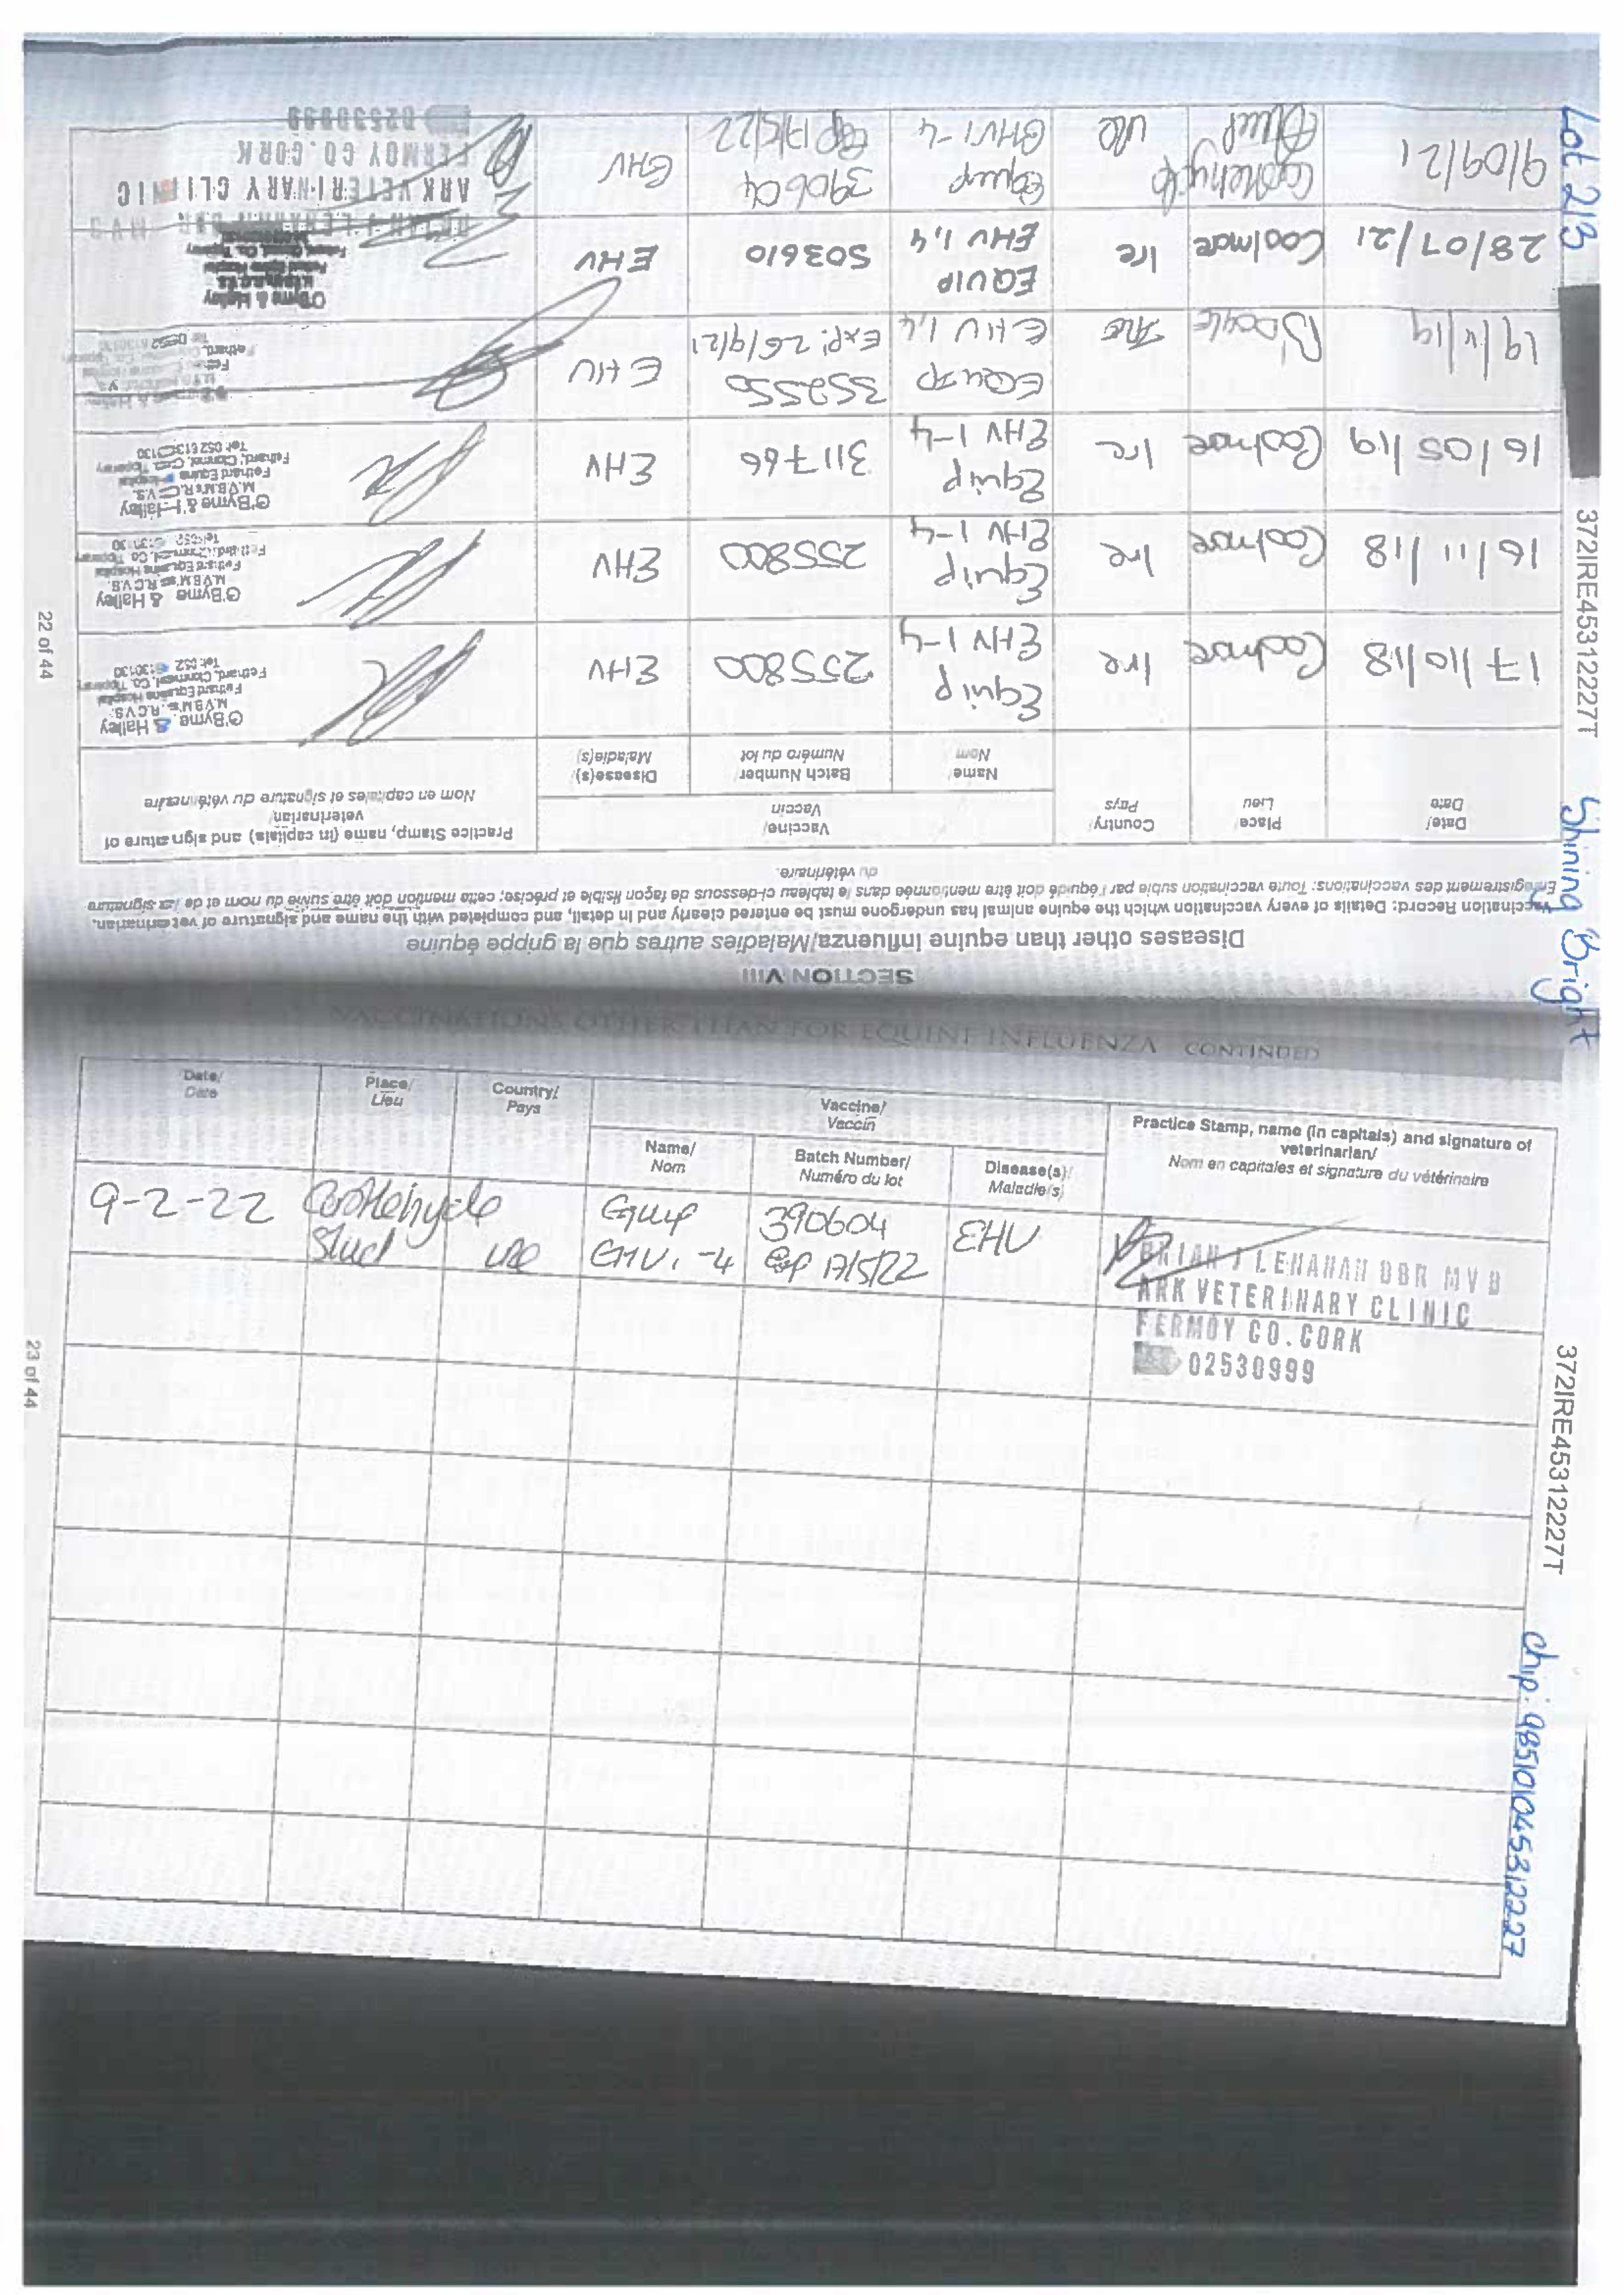 Lot 213
Shining Bright
372IRE45312227T
SECTION VIII
Diseases other than equine influenza/Maladies autres que la grippe équine
Vaccination Record: Details of every vaccination which the equine animal has undergone must be entered clearly and in detail, and completed with the name and signature of veterinarian.
Enregistrement des vaccinations: Toute vaccination subie par l'équidé doit être mentionnée dans le tableau ci-dessous de façon lisible et précise; cette mention doit être suivie du nom et de la signature
du vétérinaire.
Date/ Place/ Country/ Vaccine/ Practice Stamp, name (in capitals) and signature of
Date Lieu Pays Vaccin veterinarian/
Name/ Batch Number/ Disease(s)/ Nom en capitales et signature du vétérinaire
Nom Numéro du lot Maladie(s)
17/10/18 Coolmore Ire Equip 255800 EHV
EHV 1-4
O'Byrne & Halley
M.V.B M's.R.C.V.S.
Fethard Equine Hospital
Fethard, Clonmel, Co. Tipperary
16/11/18 Coolmore Ire Equip 255800 EHV
EHV 1-4
O'Byrne & Halley
M.V.B M's.R.C.V.S.
Fethard Equine Hospital
Fethard, Clonmel, Co. Tipperary
16/05/19 Coolmore Ire Equip 311766 EHV
EHV 1-4
O'Byrne & Halley
M.V.B M's.R.C.V.S.
Fethard Equine Hospital
Fethard, Clonmel, Co. Tipperary
EQUIP 352550 EHV
EHV 1,4 Exp: 26/9/21
28/07/21 Coolmore Ire EQUIP 503610 EHV
EHV 1,4
O'Byrne & Halley
9/09/21 Equip 390604 EHV
EHV1-4 Exp 17/5/22
BRIAN J LENAHAN DBR MVB
ARK VETERINARY CLINIC
FERMOY CO.CORK
02530999
22 of 44
VACCINATIONS OTHER THAN FOR EQUINE INFLUENZA CONTINUED
Date/ Place/ Country/ Vaccine/ Practice Stamp, name (in capitals) and signature of
Date Lieu Pays Vaccin veterinarian/
Name/ Batch Number/ Disease(s)/ Nom en capitales et signature du vétérinaire
Nom Numéro du lot Maladie(s)
9-2-22 Equip 390604 EHV
Stud EHV1-4 Exp 17/5/22
BRIAN J LENAHAN DBR MVB
ARK VETERINARY CLINIC
FERMOY CO.CORK
02530999
23 of 44
372IRE45312227T
Chip: 985101045312227